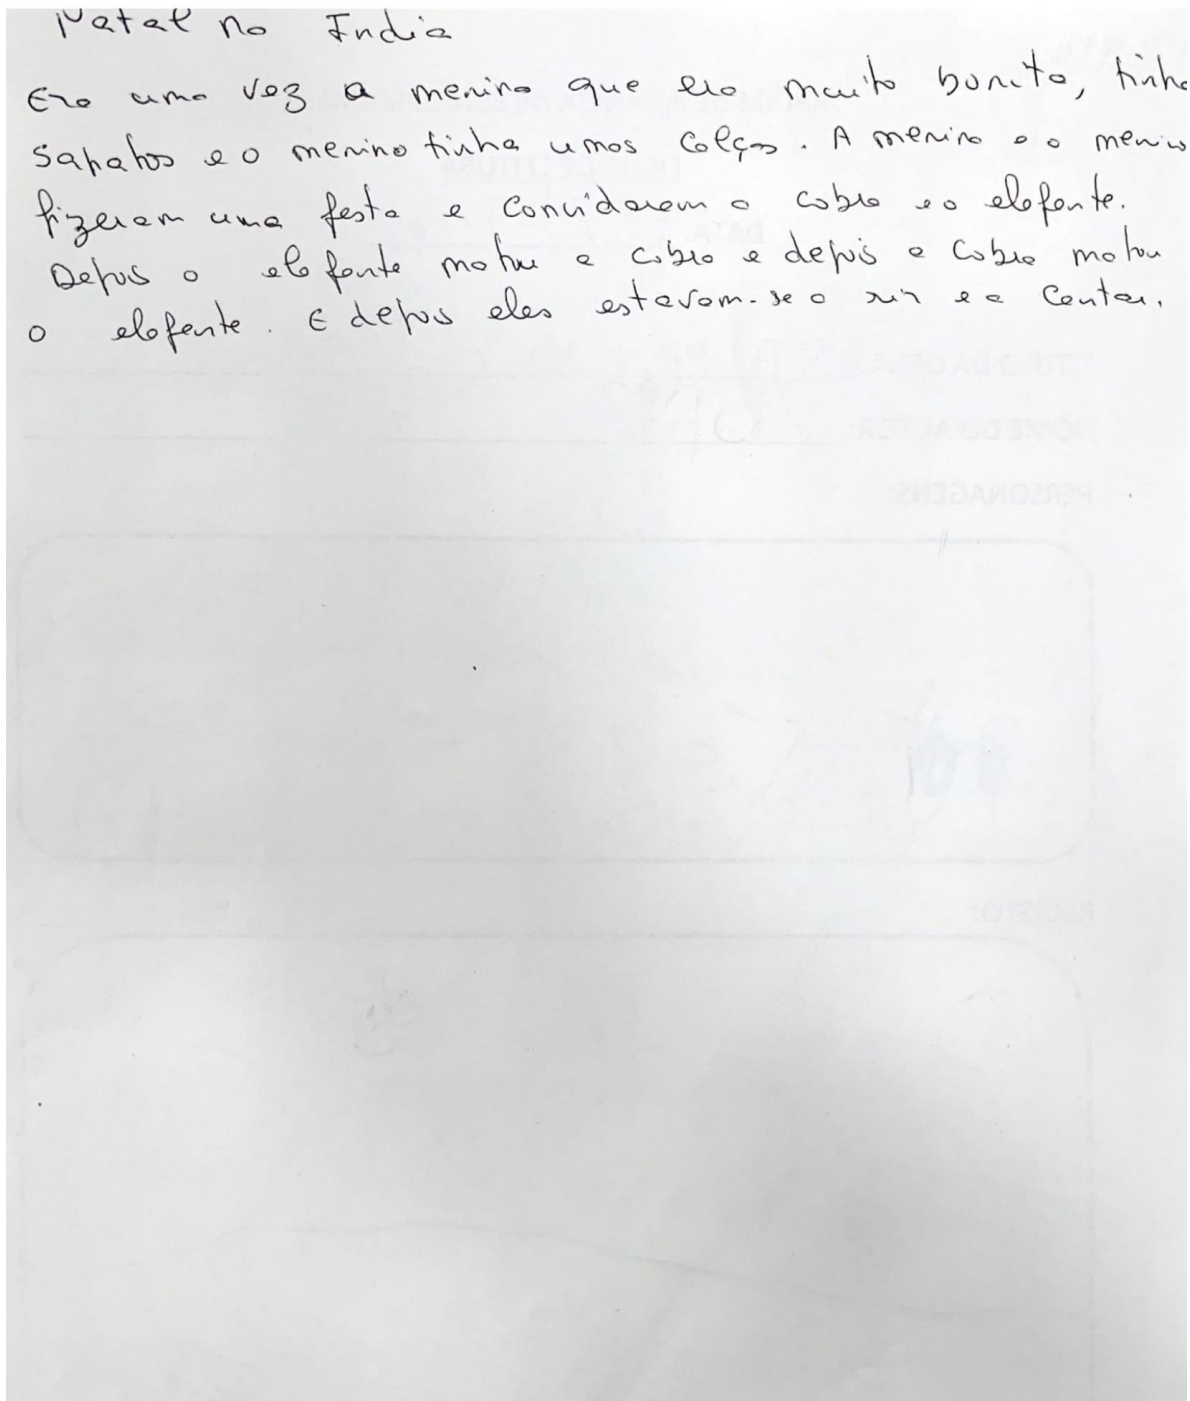 Natal na India
Era uma vez a menina que era muito bonita, tinha
sapatos e o menino tinha umas calças. A menina e o menino
fizeram uma festa e convidaram a cobra e o elefante.
Depois o elefante matou a cobra e depois a cobra matou
o elefante. E depois eles estavam-se a rir e a cantar.
DATA:
TÍTULO DA OBRA:
NOME DO AUTOR:
PERSONAGENS
REGISTO: